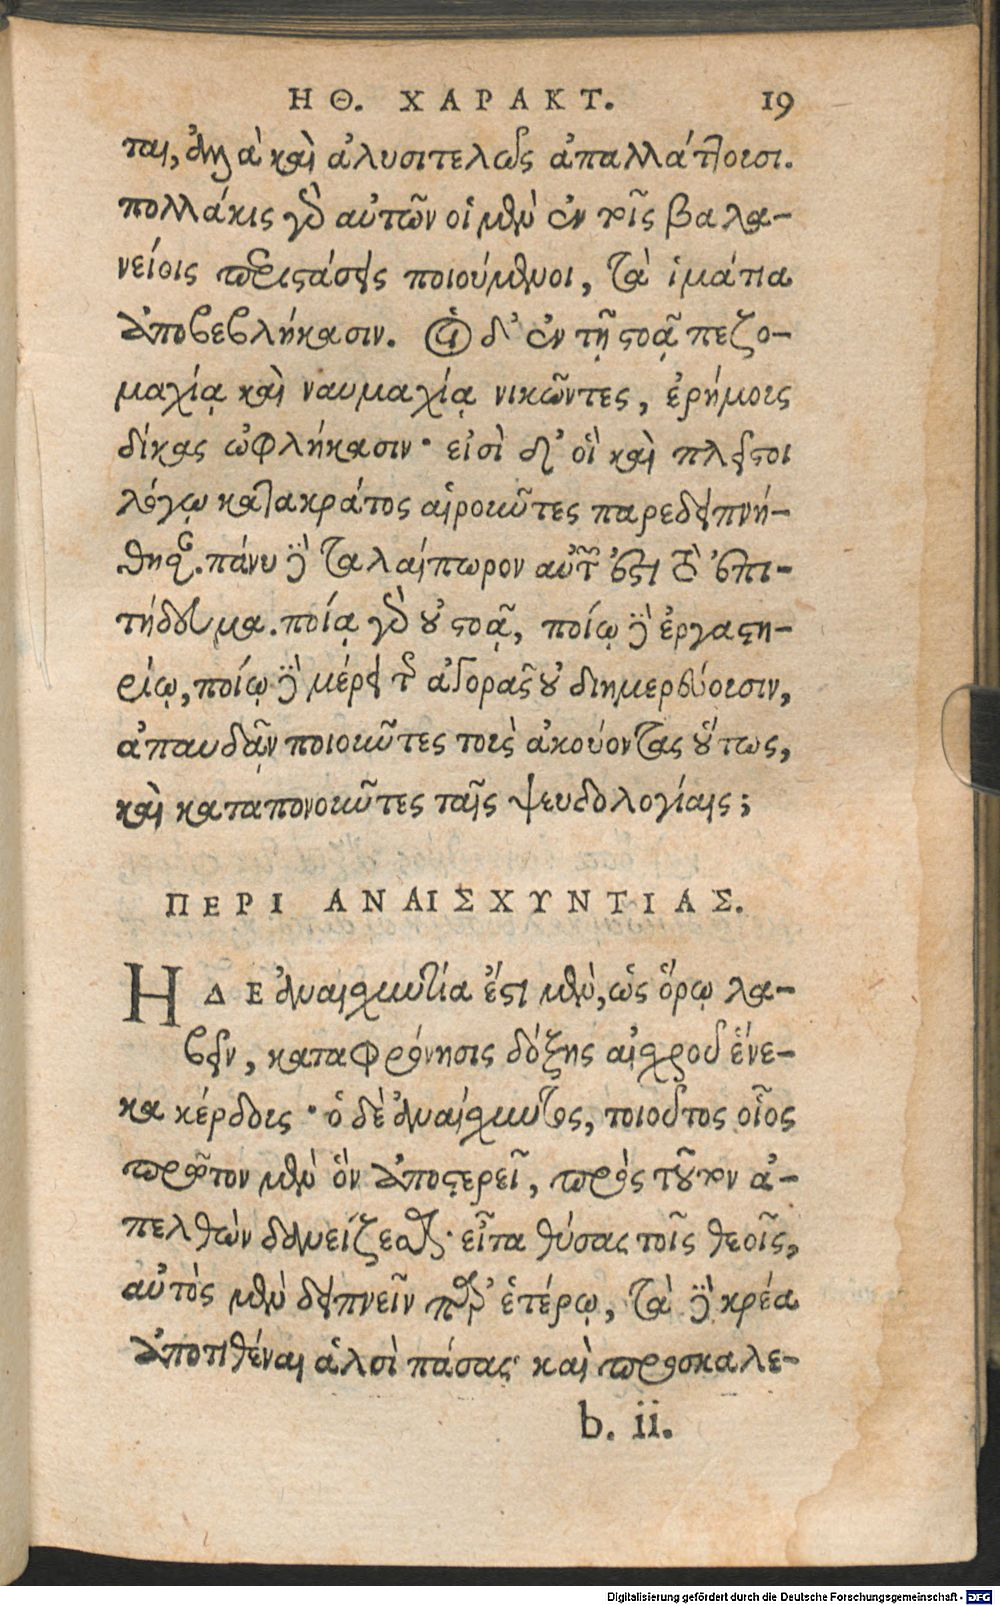 ΗΘ. ΧΑΡΑΚΤ. 19
ται, ἀλλὰ καὶ ἀλυσιτελῶς ἀπαλλάττουσι.
πολλάκις γὰρ αὐτῶν οἱ μὲν ἐν τοῖς βαλα-
νείοις περιστάσεις ποιούμενοι, τὰ ἱμάτια
ἀποβεβλήκασιν. οἱ δ' ἐν τῇ στοᾷ πεζο-
μαχίᾳ καὶ ναυμαχίᾳ νικῶντες, ἐρήμους
δίκας ὠφλήκασιν· εἰσὶ δ' οἳ καὶ πλεῖστοι
λόγῳ κατακράτος αἱροῦντες παρεδειπνή-
θησαν. πάνυ δὲ ταλαίπωρον αὐτῶν ἐστι τὸ ἐπι-
τήδευμα. ποίᾳ γὰρ οὐ στοᾷ, ποίῳ δὲ ἐργαστη-
ρίῳ, ποίῳ δὲ μέρει τῆς ἀγορᾶς οὐ διημερεύουσιν,
ἀπαυδᾷν ποιοῦντες τοὺς ἀκούοντας οὕτως,
καὶ καταπονοῦντες ταῖς ψευδολογίαις;
ΠΕΡΙ ΑΝΑΙΣΧΥΝΤΙΑΣ.
Η ΔΕ ἀναισχυντία ἐστὶ μὲν, ὡς ὅρῳ λα-
βεῖν, καταφρόνησις δόξης αἰσχροῦ ἕνε-
κα κέρδους· ὁ δὲ ἀναίσχυντος, τοιοῦτος οἷος
πρῶτον μὲν ὃν ἀποστερεῖ, πρὸς τοῦτον ἀ-
πελθὼν δανείζεσθαι· εἶτα θύσας τοῖς θεοῖς,
αὐτὸς μὲν δειπνεῖν παρ' ἑτέρῳ, τὰ δὲ κρέα
ἀποτιθέναι ἁλσὶ πάσας· καὶ προσκαλε-
b. ii.
Digitalisierung gefördert durch die Deutsche Forschungsgemeinschaft - DFG